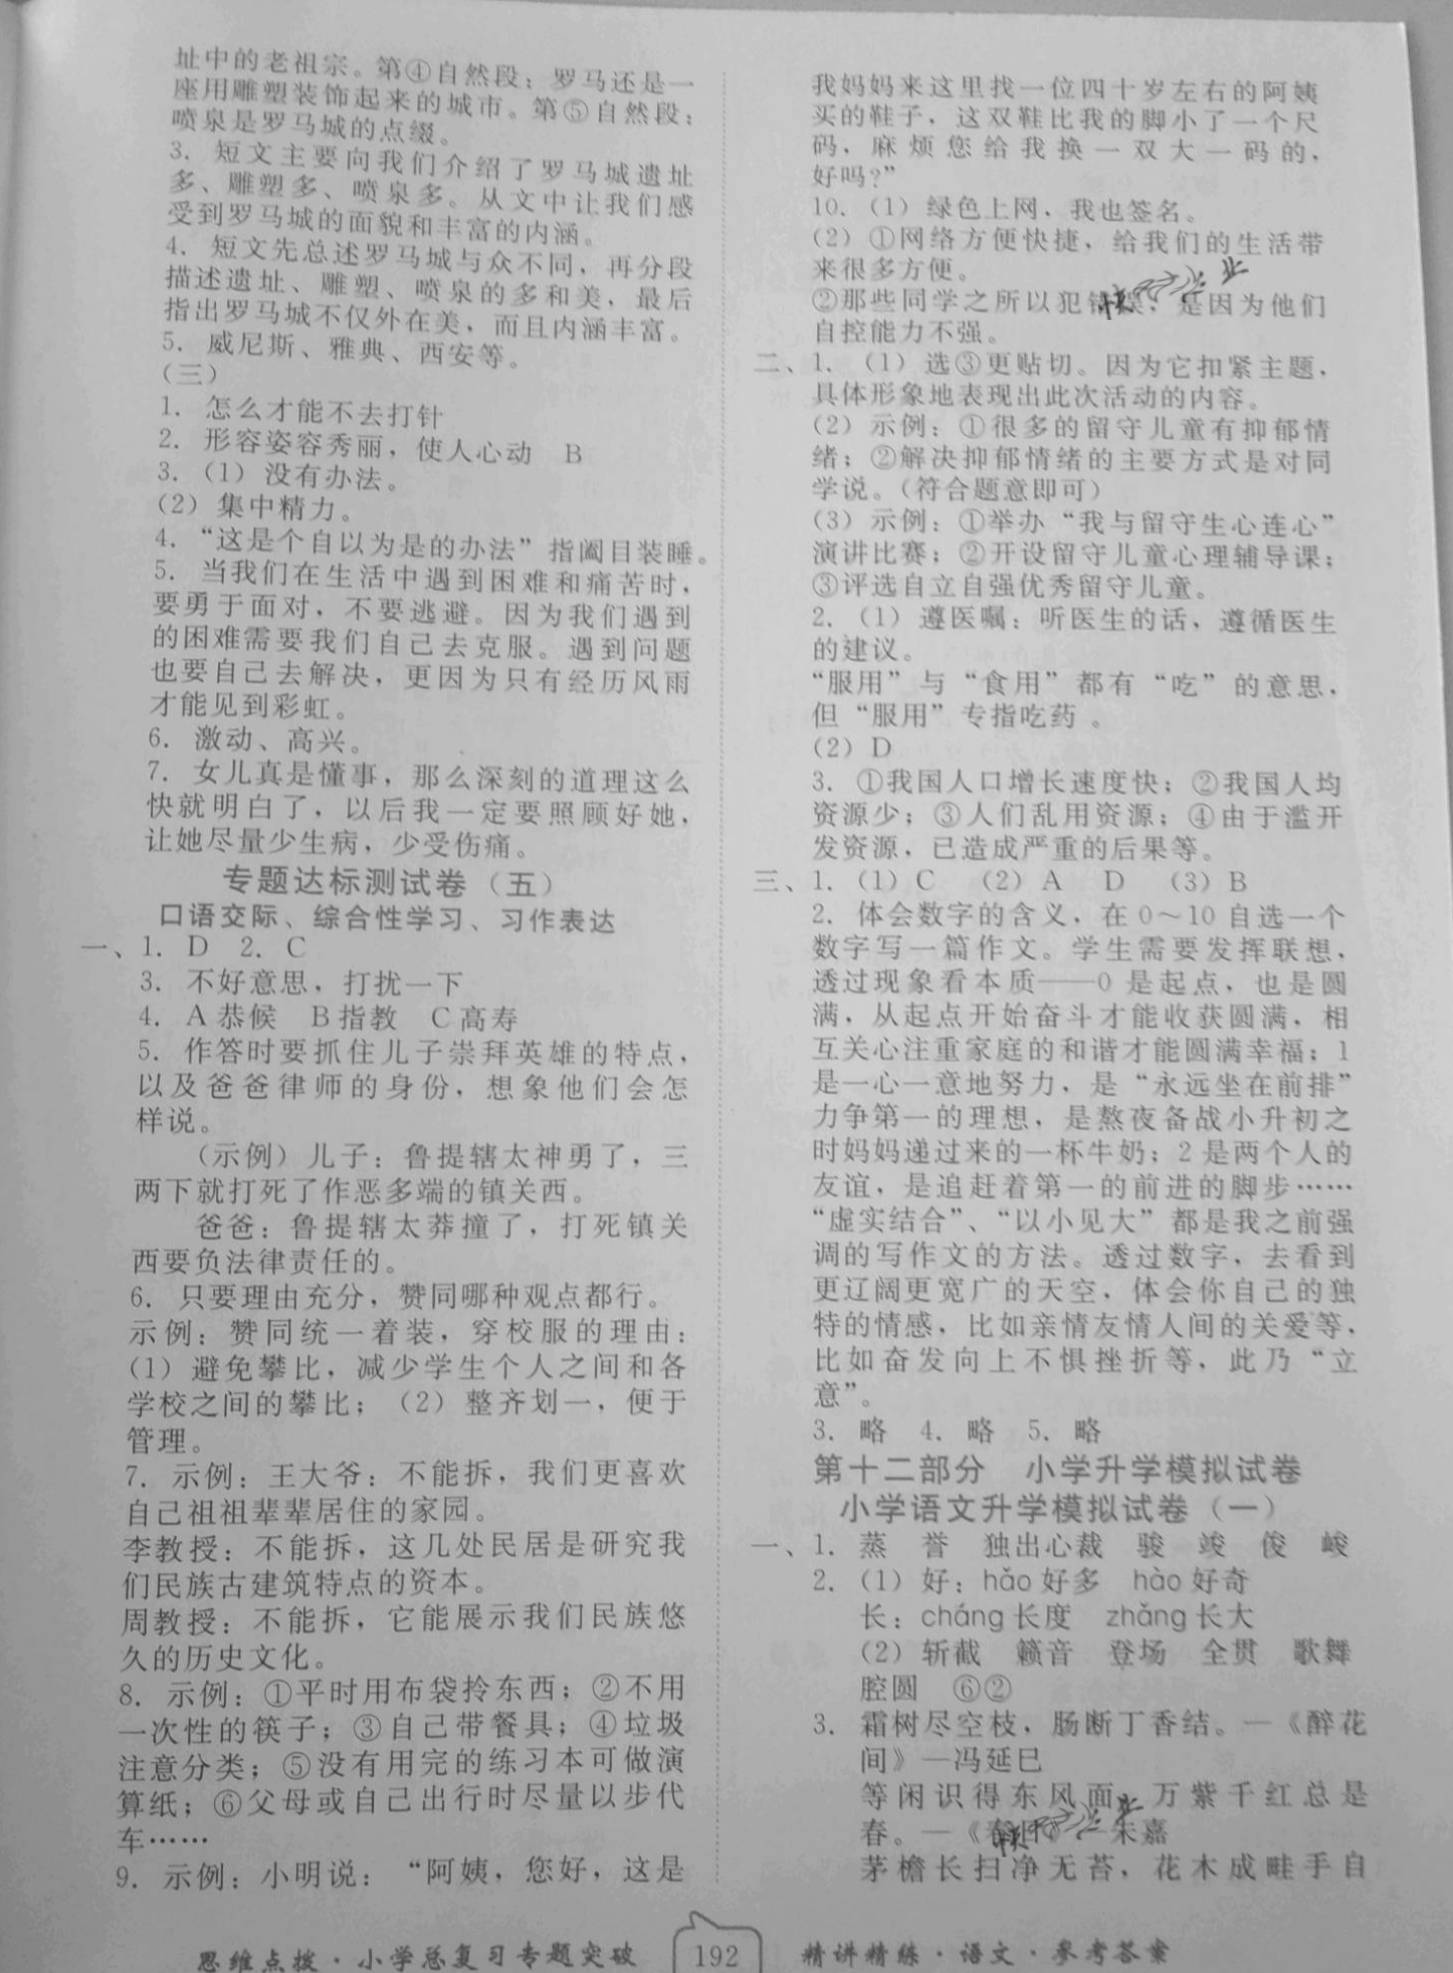 址中的老祖宗。第④自然段：罗马还是一
座用雕塑装饰起来的城市。第⑤自然段：
喷泉是罗马城的点缀。
3. 短文主要向我们介绍了罗马城遗址
多、雕塑多、喷泉多。从文中让我们感
受到罗马城的面貌和丰富的内涵。
4. 短文先总述罗马城与众不同，再分段
描述遗址、雕塑、喷泉的多和美，最后
指出罗马城不仅外在美，而且内涵丰富。
5. 威尼斯、雅典、西安等。
（三）
1. 怎么才能不去打针
2. 形容姿容秀丽，使人心动 B
3.（1）没有办法。
（2）集中精力。
4.“这是个自以为是的办法”指阖目装睡。
5. 当我们在生活中遇到困难和痛苦时，
要勇于面对，不要逃避。因为我们遇到
的困难需要我们自己去克服。遇到问题
也要自己去解决，更因为只有经历风雨
才能见到彩虹。
6. 激动、高兴。
7. 女儿真是懂事，那么深刻的道理这么
快就明白了，以后我一定要照顾好她，
让她尽量少生病，少受伤痛。
专题达标测试卷（五）
口语交际、综合性学习、习作表达
一、1. D 2. C
3. 不好意思，打扰一下
4. A恭候 B指教 C高寿
5. 作答时要抓住儿子崇拜英雄的特点，
以及爸爸律师的身份，想象他们会怎
样说。
（示例）儿子：鲁提辖太神勇了，三
两下就打死了作恶多端的镇关西。
爸爸：鲁提辖太莽撞了，打死镇关
西要负法律责任的。
6. 只要理由充分，赞同哪种观点都行。
示例：赞同统一着装，穿校服的理由：
（1）避免攀比，减少学生个人之间和各
学校之间的攀比；（2）整齐划一，便于
管理。
7. 示例：王大爷：不能拆，我们更喜欢
自己祖祖辈辈居住的家园。
李教授：不能拆，这几处民居是研究我
们民族古建筑特点的资本。
周教授：不能拆，它能展示我们民族悠
久的历史文化。
8. 示例：①平时用布袋拎东西；②不用
一次性的筷子；③自己带餐具；④垃圾
注意分类；⑤没有用完的练习本可做演
算纸；⑥父母或自己出行时尽量以步代
车……
9. 示例：小明说：“阿姨，您好，这是
我妈妈来这里找一位四十岁左右的阿姨
买的鞋子，这双鞋比我的脚小了一个尺
码，麻烦您给我换一双大一码的，
好吗？”
10.（1）绿色上网，我也签名。
（2）①网络方便快捷，给我们的生活带
来很多方便。
②那些同学之所以犯错误，是因为他们
自控能力不强。
二、1.（1）选③更贴切。因为它扣紧主题，
具体形象地表现出此次活动的内容。
（2）示例：①很多的留守儿童有抑郁情
绪；②解决抑郁情绪的主要方式是对同
学说。（符合题意即可）
（3）示例：①举办“我与留守生心连心”
演讲比赛；②开设留守儿童心理辅导课；
③评选自立自强优秀留守儿童。
2.（1）遵医嘱：听医生的话，遵循医生
的建议。
“服用”与“食用”都有“吃”的意思，
但“服用”专指吃药 。
（2）D
3. ①我国人口增长速度快；②我国人均
资源少；③人们乱用资源；④由于滥开
发资源，已造成严重的后果等。
三、1.（1）C （2）A D （3）B
2. 体会数字的含义，在0～10自选一个
数字写一篇作文。学生需要发挥联想，
透过现象看本质——0是起点，也是圆
满，从起点开始奋斗才能收获圆满，相
互关心注重家庭的和谐才能圆满幸福；1
是一心一意地努力，是“永远坐在前排”
力争第一的理想，是熬夜备战小升初之
时妈妈递过来的一杯牛奶；2是两个人的
友谊，是追赶着第一的前进的脚步……
“虚实结合”、“以小见大”都是我之前强
调的写作文的方法。透过数字，去看到
更辽阔更宽广的天空，体会你自己的独
特的情感，比如亲情友情人间的关爱等，
比如奋发向上不惧挫折等，此乃“立
意”。
3. 略 4. 略 5. 略
第十二部分 小学升学模拟试卷
小学语文升学模拟试卷（一）
一、1. 蒸 誉 独出心裁 骏 竣 俊 峻
2.（1）好：hǎo好多 hào好奇
长：cháng长度 zhǎng长大
（2）斩截 籁音 登场 全贯 歌舞
腔圆 ⑥②
3. 霜树尽空枝，肠断丁香结。—《醉花
间》—冯延巳
等闲识得东风面，万紫千红总是
春。—《春日》—朱嘉
茅檐长扫净无苔，花木成畦手自
思维点拨·小学总复习专题突破
192
精讲精练·语文·参考答案